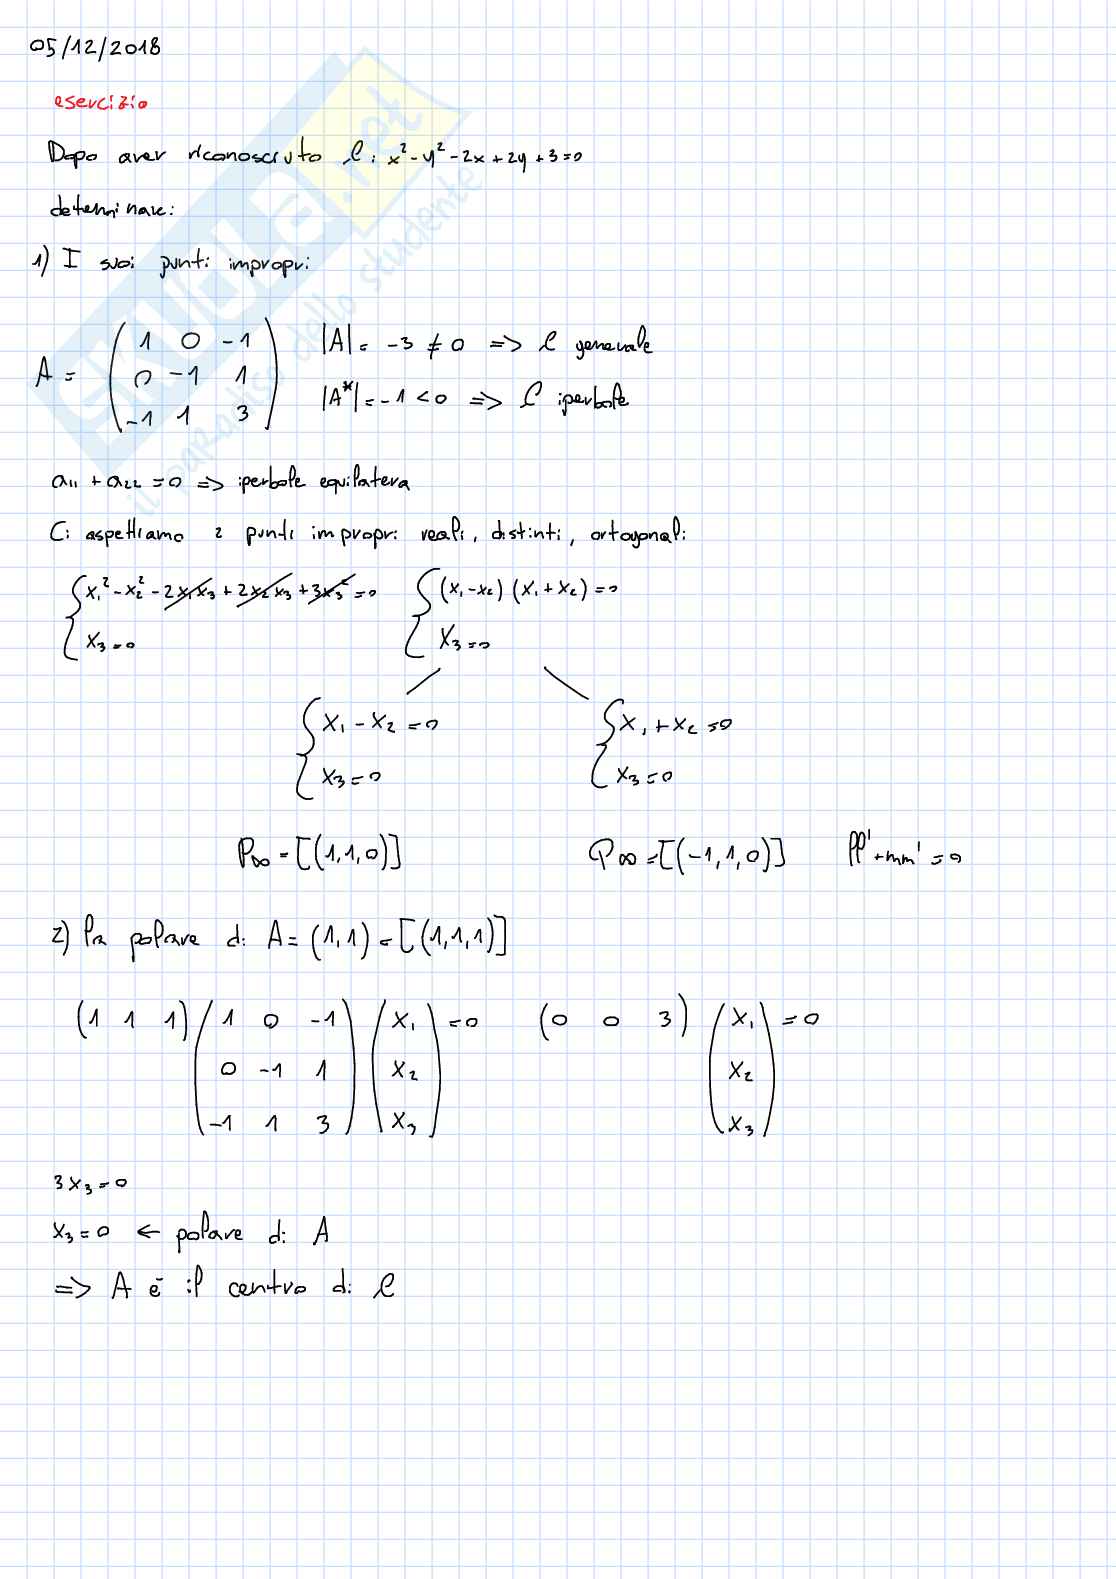 05/12/2018
esercizio
Dopo aver riconosciuto C: x² - y² - 2x + 2y + 3 = 0
determinare:
1) I suoi punti impropri
A = ( 1 0 -1 |A| = -3 ≠ 0 => C generale
0 -1 1
-1 1 3 ) |A*| = -1 < 0 => C iperbole
a₁₁ + a₂₂ = 0 => iperbole equilatera
Ci aspettiamo 2 punti impropri reali, distinti, ortogonali
{ x₁² - x₂² - 2x₁x₃ + 2x₂x₃ + 3x₃² = 0 { (x₁ - x₂) (x₁ + x₂) = 0
x₃ = 0 x₃ = 0
{ x₁ - x₂ = 0 { x₁ + x₂ = 0
x₃ = 0 x₃ = 0
P∞ = [(1,1,0)] Q∞ = [(-1,1,0)] ll' + mm' = 0
2) la polare di A = (1,1) = [(1,1,1)]
(1 1 1) ( 1 0 -1 ) ( x₁ ) = 0 (0 0 3) ( x₁ ) = 0
0 -1 1 x₂ x₂
-1 1 3 x₃ x₃
3x₃ = 0
x₃ = 0 ← polare di A
=> A è il centro di C
SKUOLA.net
il paradiso dello studente